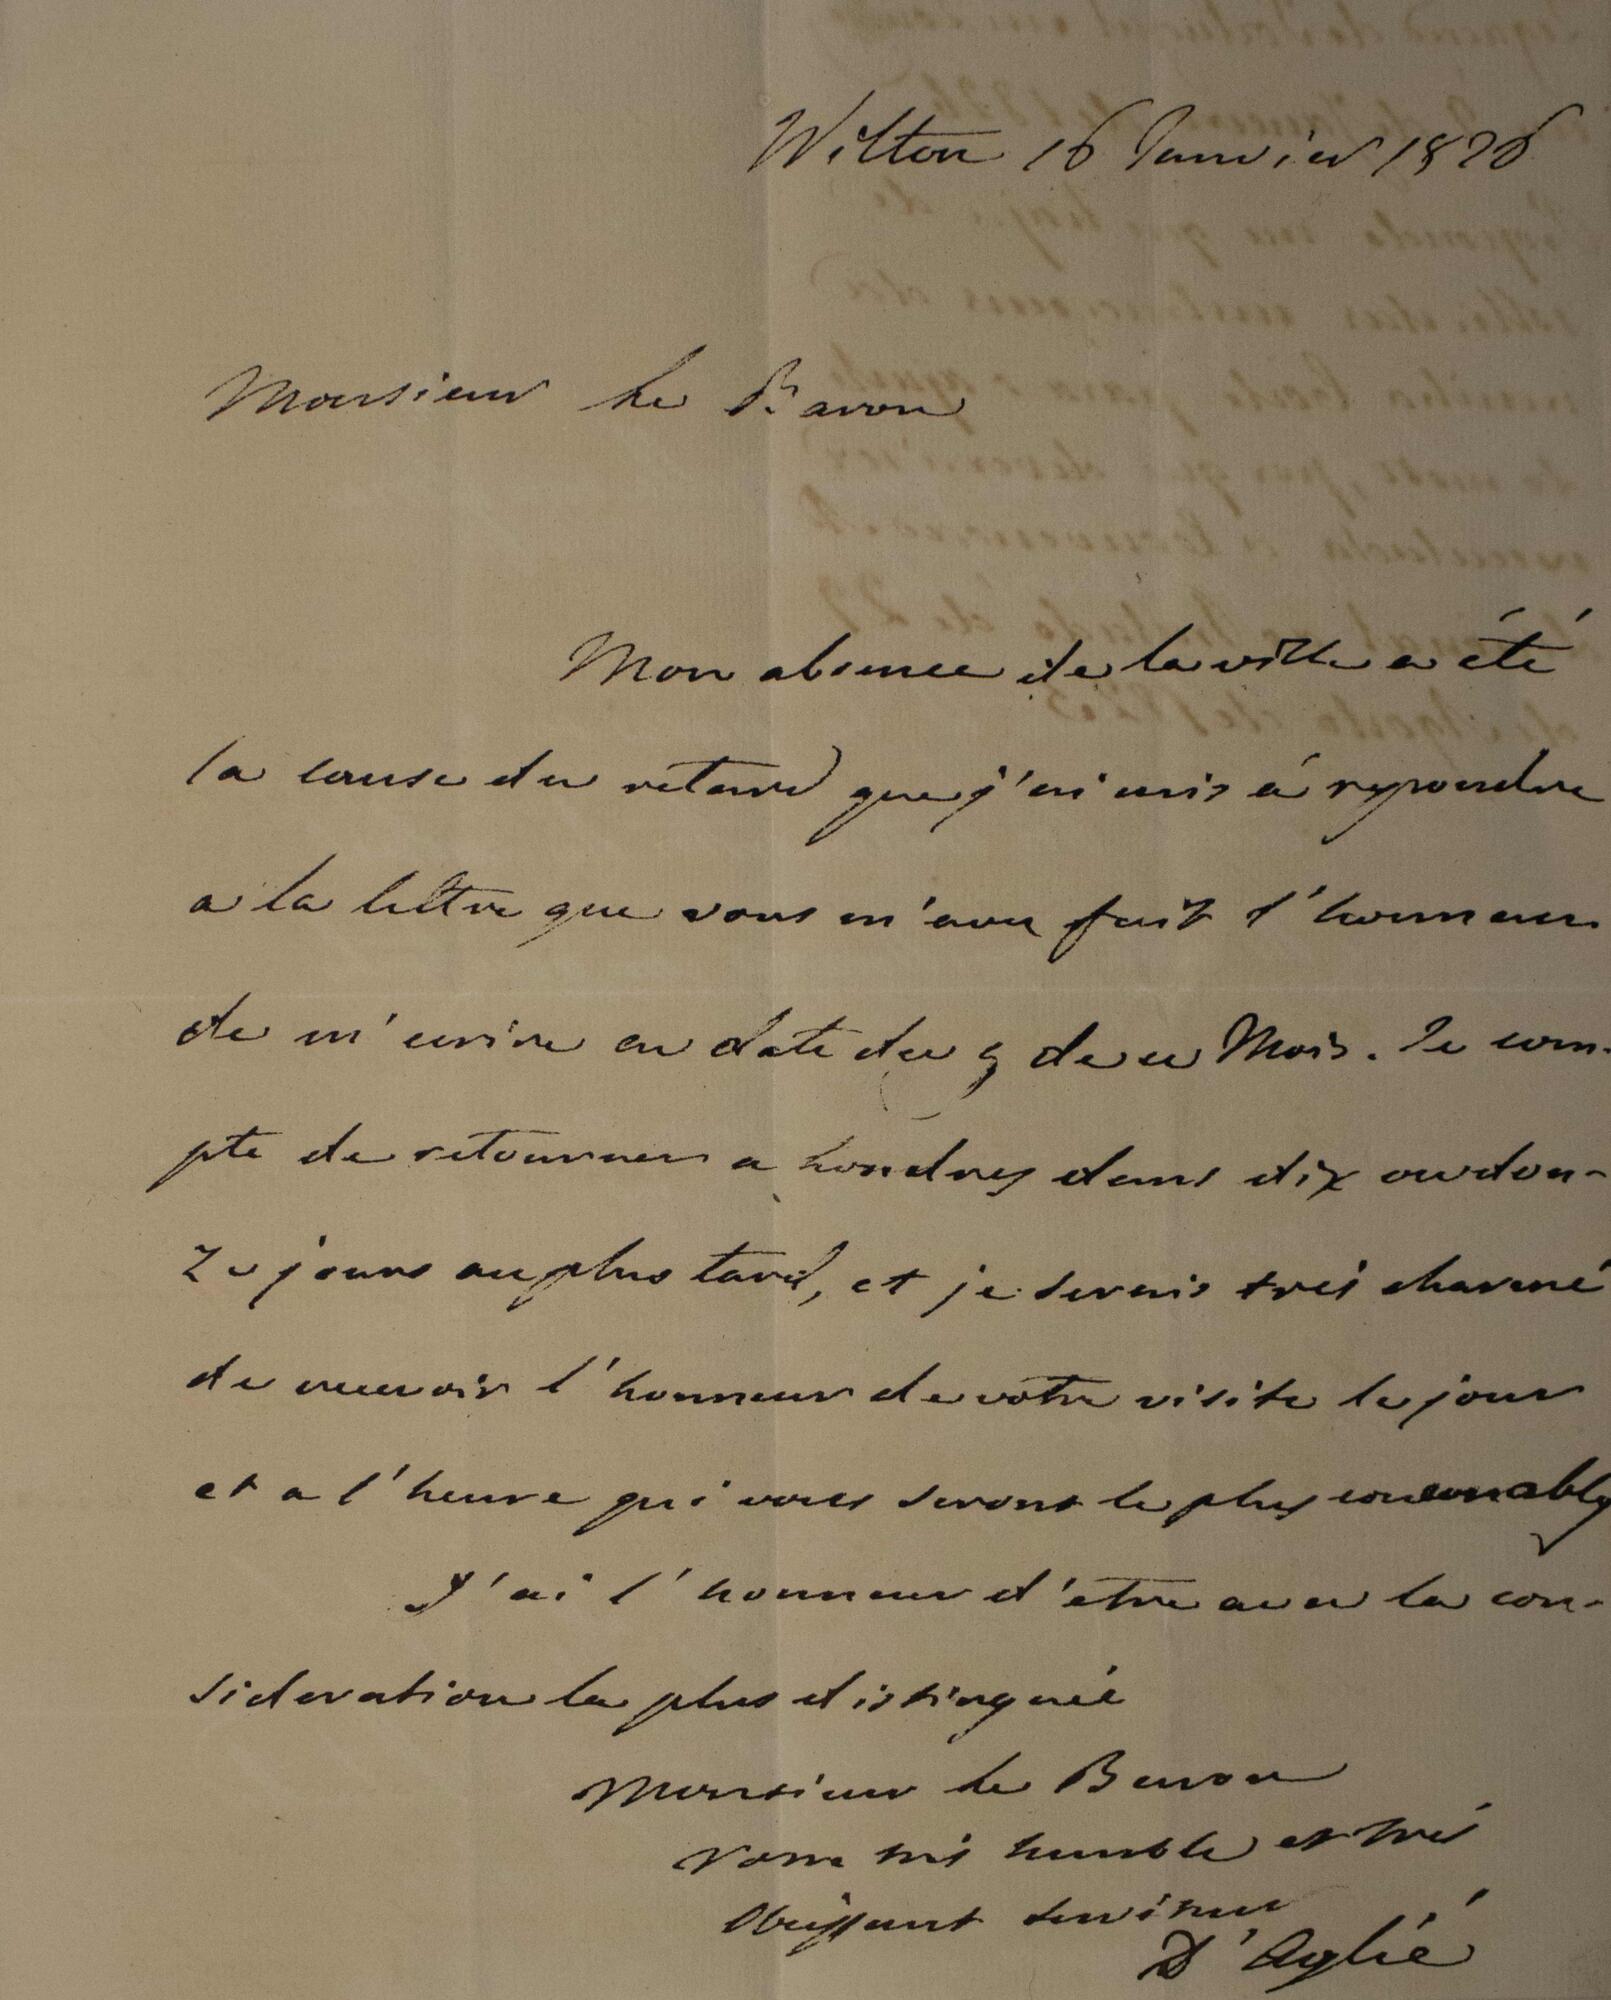 Wilton 16 Janvier 1826
Monsieur Le Baron
Mon absence de la ville a été
la cause du retard que j'ai mis á repondre
a la lettre que vous m'avez fait l'honneur
de m'ecrire en date du 9 de ce Mois. Je com-
pte de retourner a Londres dans dix ou dou-
ze jours au plus tard, et je serais tres charmé
de recevoir l'honneur de votre visite le jour
et a l'heure qui vous seront le plus convenables
J'ai l'honneur d'etre avec la con-
sideration la plus distinguée
Monsieur le Baron
Votre trés humble et trés
Obeissant serviteur
D'Aglié